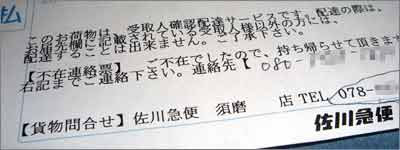 払
このお荷物は、受取人確認配達サービスです。配達の際は、
お届先欄に記載されている受取人様以外の方には、
配達することは出来ません。ご了承下さい。
【不在連絡票】 ご不在でしたので、持ち帰らせて頂きます
右記までご連絡下さい。連絡先【080-
【貨物問合せ】佐川急便 須磨 店 TEL 078-
佐川急便